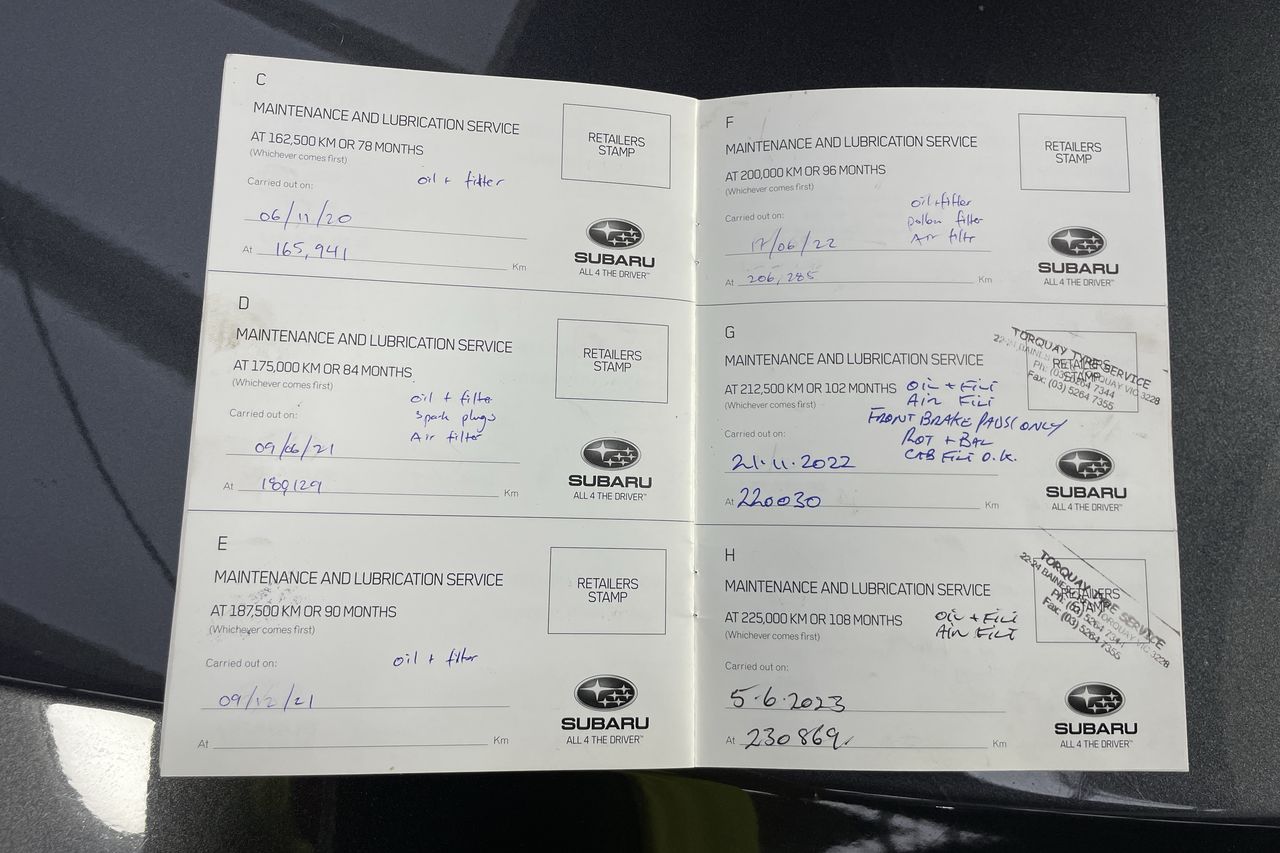 C
MAINTENANCE AND LUBRICATION SERVICE
AT 162,500 KM OR 78 MONTHS
(Whichever comes first)
RETAILERS
STAMP
Carried out on:
oil + filter
06/11/20
At 165,941 Km
SUBARU
ALL 4 THE DRIVER™
D
MAINTENANCE AND LUBRICATION SERVICE
AT 175,000 KM OR 84 MONTHS
(Whichever comes first)
RETAILERS
STAMP
Carried out on:
oil + filter
spark plugs
Air filter
09/06/21
At 189129 Km
SUBARU
ALL 4 THE DRIVER™
E
MAINTENANCE AND LUBRICATION SERVICE
AT 187,500 KM OR 90 MONTHS
(Whichever comes first)
RETAILERS
STAMP
Carried out on:
oil + filter
09/12/21
At Km
SUBARU
ALL 4 THE DRIVER™
F
MAINTENANCE AND LUBRICATION SERVICE
AT 200,000 KM OR 96 MONTHS
(Whichever comes first)
RETAILERS
STAMP
Carried out on:
oil + filter
pollen filter
Air filter
17/06/22
At 206,285 Km
SUBARU
ALL 4 THE DRIVER™
G
MAINTENANCE AND LUBRICATION SERVICE
AT 212,500 KM OR 102 MONTHS
(Whichever comes first)
RETAILERS
STAMP
TORQUAY TYRE SERVICE
TORQUAY VIC 3228
Ph: (03) 5264 7344
Fax: (03) 5264 7355
OIL + FILT
AIR FILT
FRONT BRAKE PADS ONLY
ROT + BAL
CAB FILT O.K.
Carried out on:
21.11.2022
At 220030 Km
SUBARU
ALL 4 THE DRIVER™
H
MAINTENANCE AND LUBRICATION SERVICE
AT 225,000 KM OR 108 MONTHS
(Whichever comes first)
RETAILERS
STAMP
TORQUAY TYRE SERVICE
22-24 BAINES TORQUAY VIC 3228
Ph: (03) 5264 7344
Fax: (03) 5264 7355
OIL + FILT
AIR FILT
Carried out on:
5.6.2023
At 230869 Km
SUBARU
ALL 4 THE DRIVER™